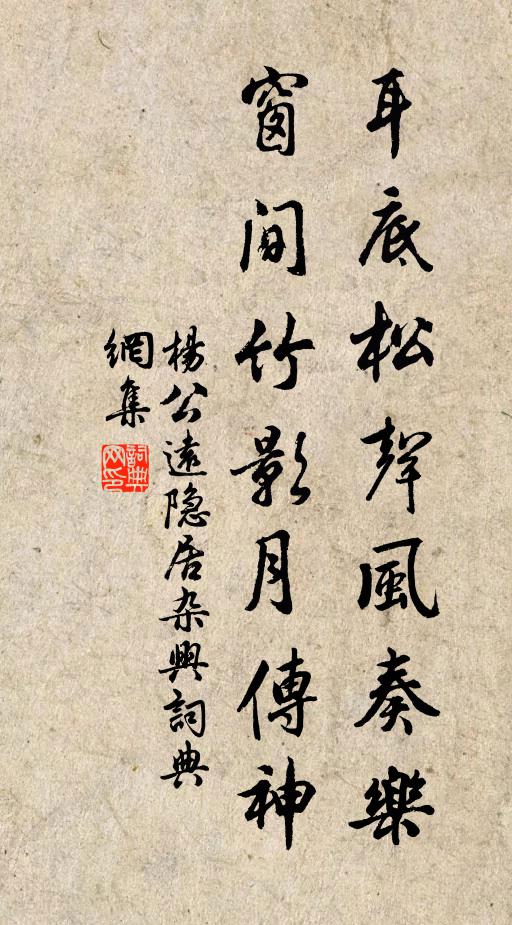 耳底松聲風奏樂
窗間竹影月傳神
楊公遠隐居杂興詞典
網集
詞典網印